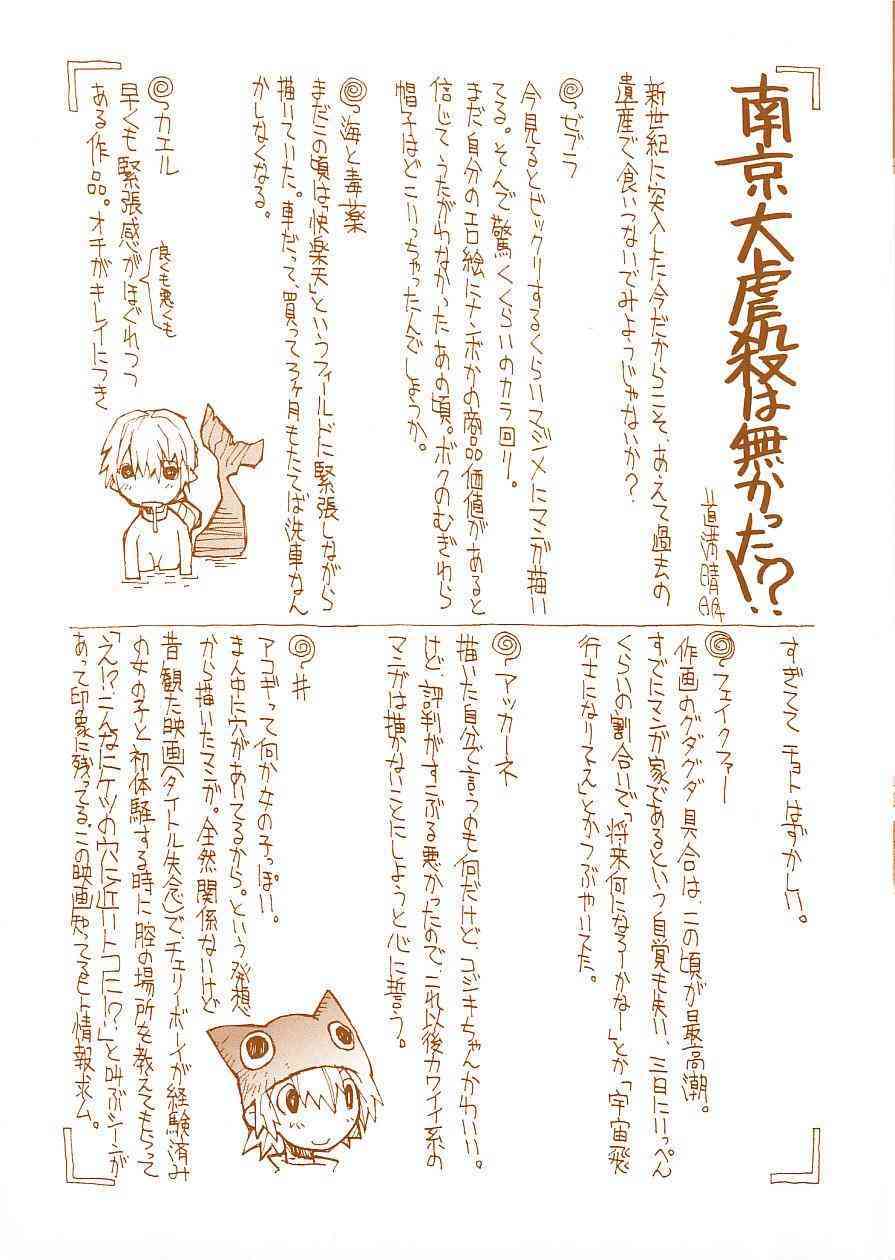 南京大虐殺は無かった!?
道満晴明
新世紀に突入した今だからこそ、あえて過去の
遺産で食いつないでみようじゃないか?
ゼブラ
今見るとビックリするくらいマジメにマンガ描い
てる。そんで驚くくらいのカラ回り。
まだ自分のエロ絵にナンボかの商品価値があると
信じてうたがわなかったあの頃。ボクのむぎわら
帽子はどこいっちゃったんでしょうか。
海と毒薬
まだこの頃は「快楽天」というフィールドに緊張しながら
描いていた。車だって、買って3ヶ月もたてば洗車なん
かしなくなる。
カエル
良くも悪くも
早くも緊張感がほぐれつつ
ある作品。オチがキレイにつき
すぎてて チョトはずかしい。
フェイクファー
作画のグダグダ具合は、この頃が最高潮。
すでにマンガ家であるという自覚も失い、三日にいっぺん
くらいの割合いで「将来何になろーかなー」とか「宇宙飛
行士になりてえ」とかつぶやいてた。
アッカーネ
描いた自分で言うのも何だけど、コジキちゃんかわいい。
けど、評判がすこぶる悪かったので、これ以後カワイイ系の
マンガは描かないことにしようと心に誓う。
井
アコギって何か女の子っぽい。
まん中に穴があいてるから。という発想
から描いたマンガ。全然関係ないけど
昔観た映画(タイトル失念)で、チェリーボーイが経験済み
の女の子と初体験する時に腔の場所を教えてもらって
「え!?こんなにケツの穴に近いトコに!?」と叫ぶシーンが
あって印象に残ってる。この映画知ってるヒト情報求ム。